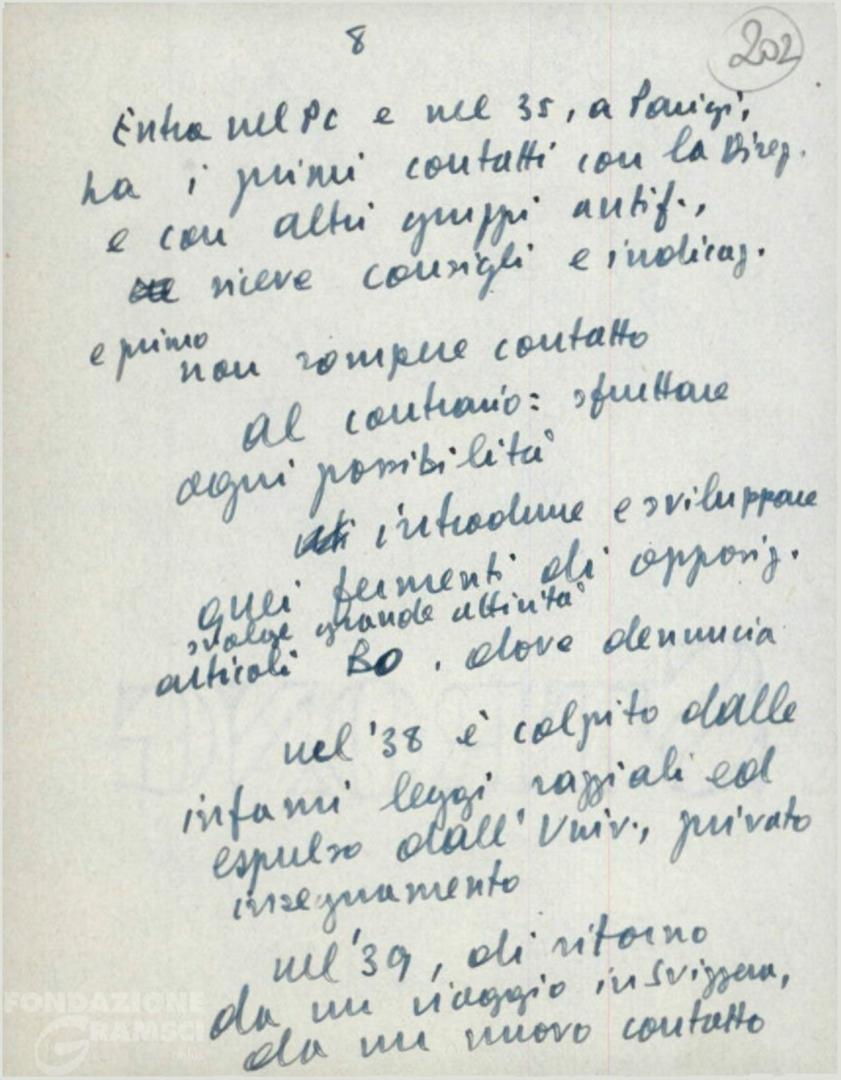 8
202
Entra nel Pc e nel 35, a Parigi,
ha i primi contatti con la Direz.
e con altri gruppi antif.,
riceve consigli e indicaz.
e primo
non rompere contatto
al contrario: sfruttare
ogni possibilità
introdurre e sviluppare
quei fermenti di opposiz.
svolge grande attività
articoli BO. dove denuncia
nel '38 è colpito dalle
infami leggi razziali ed
espulso dall'Univ., privato
insegnamento
nel '39, di ritorno
da un viaggio in Svizzera,
da un nuovo contatto
FONDAZIONE
GRAMSCI